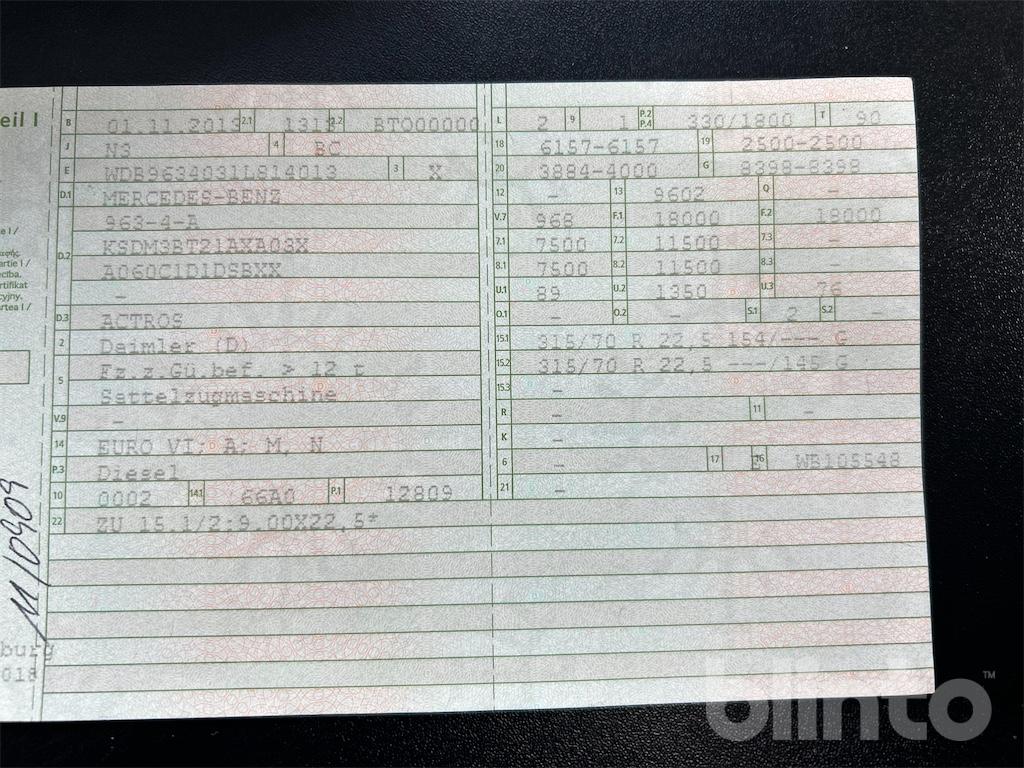 eil I
B 01.11.2013 2.1 1313 2.2 BT000000
J N3 4 BC
E WDB9634031L814013 3 X
D.1 MERCEDES-BENZ
D.2 963-4-A
KSDM3BT21AXA03X
A060C1D1DSBXX
–
D.3 ACTROS
2 Daimler (D)
5 Fz.z.Gü.bef. > 12 t
Sattelzugmaschine
V.9 –
14 EURO VI; A; M, N
P.3 Diesel
10 0002 14.1 66A0 P.1 12809
22 ZU 15.1/2:9.00X22,5*
L 2 9 1 P.2 P.4 330/1800 T 90
18 6157-6157 19 2500-2500
20 3884-4000 G 8398-8398
12 – 13 9602 Q –
V.7 968 F.1 18000 F.2 18000
7.1 7500 7.2 11500 7.3 –
8.1 7500 8.2 11500 8.3 –
U.1 89 U.2 1350 U.3 76
O.1 – O.2 – S.1 2 S.2 –
15.1 315/70 R 22,5 154/--- G
15.2 315/70 R 22,5 ---/145 G
15.3 –
R – 11 –
K –
6 – 17 E 16 WB105548
21 –
tel I /
artie I /
ecība,
rtifikat
cyjny,
rtea I /
M10909
burg
018
blinto™